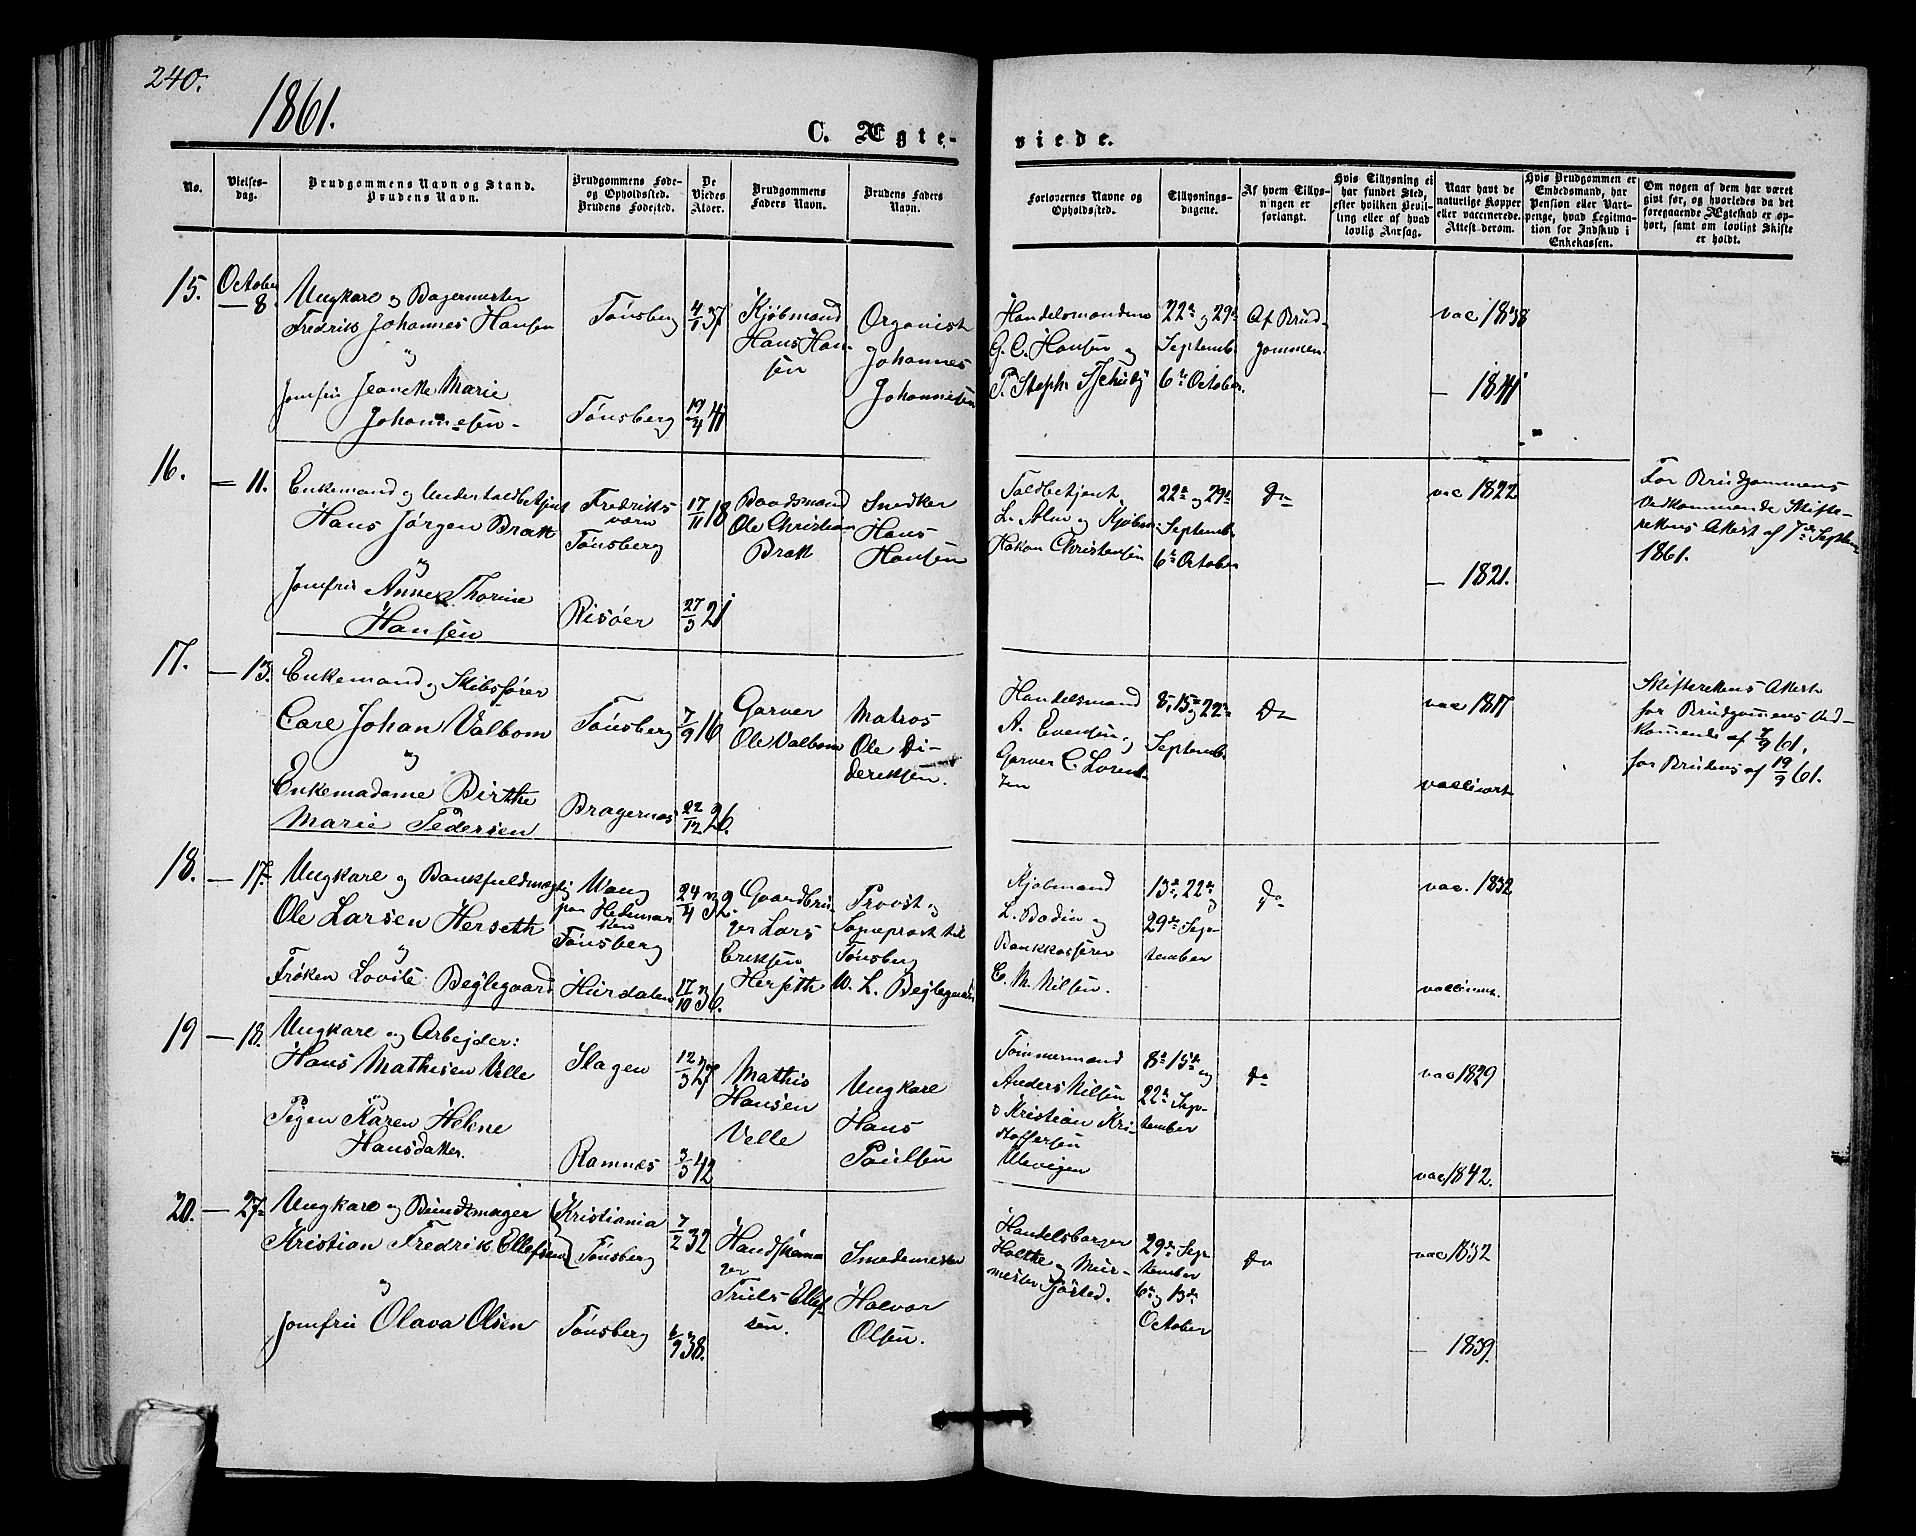 240.
1861.
C. Ægte-
viede.
No.
Vielses-
dag.
Brudgommens Navn og Stand.
Brudens Navn.
Brudgommens Føde-
og Opholdssted.
Brudens Fødested.
De
Viedes
Alder.
Brudgommens
Faders Navn.
Brudens Faders
Navn.
Forlovernes Navne og
Opholdssted.
Tillysnings-
dagene.
Af hvem Tillys-
ningen er
forlangt.
Hvis Tillysning ei
har fundet Sted,
efter hvilken Bevil-
ling eller af hvad
lovlig Aarsag.
Naar havt de
naturlige Kopper
eller vaccinerede.
Attest derom.
Hvis Brudgommen er
Embedsmand, har
Pension eller Vart-
penge, hvad Legitima-
tion for Indskud i
Enkekassen.
Om nogen af dem har været
givt før, og hvorledes da det
foregaaende Ægteskab er op-
hørt, samt om lovligt Skifte
er holdt.
15.
October
— 8.
Ungkarl og Bagermester
Fredrik Johannes Hansen
og
Jomfru Jeanette Marie
Johannesen -
Tønsberg
Tønsberg
4/1 37
19/4 41
Kjøbmand
Hans Han-
sen
Organist
Johannes
Johannesen
Handelsmændene
G. C. Hansen og
P. Steph. Tschudy
22de og 29de
Septemb.
6te October.
Af Brud-
gommen
vac 1838
— 1841
16.
— 11.
Enkemand og Undertoldbetjent
Hans Jørgen Bratt
og
Jomfru Anne Thorine
Hansen
Fredriks-
værn
Tønsberg
Risøer
17/11 18
27/3 21
Baadsmand
Ole Christian
Bratt
Snedker
Hans
Hansen
Toldbetjent
L. Holm og Kjøbm:
Hakon Christensen
22de og 29de
Septemb.
6te October
Do
vac 1822
— 1821.
For Brudgommens
Vedkommende Skifte-
rettens Attest af 7de Septem
1861.
17.
— 13.
Enkemand og Skibsfører
Carl Johan Valbom
og
Enkemadame Birthe
Marie Pedersen
Tønsberg
Bragernæs
7/9 16
22/12 26.
Garver
Ole Valbom
Matros
Ole Di-
deriksen.
Handelsmand
A. Evensen og
Garver C. Lorent-
zen
8, 15de og 22de
Septemb.
Do
vac 1817
vaccinert
Skifterettens Attest
for Brudgommens Ved-
kommende af 7/9 61.
for Brudens af 19/9 61.
18.
— 17.
Ungkarl og Bankfuldmægtig
Ole Larsen Herseth
og
Frøken Lovise Bejlegaard
Vang
paa Hedemar-
ken
Tønsberg
Hurdalen
24/4 32.
17/10 36.
Gaardbru-
ger Lars
Eriksen
Herseth
Provst og
Sogneprest til
Tønsberg
W. L. Bejlegaard
Kjøbmand
L. Bødin og
Bankkasserer
C. M. Nilsen.
15de, 22de og
29de Sep-
tember
Do
vac. 1832
vaccineret.
19
— 18.
Ungkarl og Arbejder:
Hans Mathisen Velle
og
Pigen Karen Helene
Hansdatter.
Slagen
Ramnes
12/3 27
3/3 42
Mathis
Hansen
Velle
Ungkarl
Hans
Paulsen
Tømmermand
Anders Nilsen
o Kristian Kri-
stoffersen
Ulevigen
8de 15de og
22de Sep-
tember
Do
vac 1829
vac 1842.
20.
— 27.
Ungkarl og Bundtmager
Kristian Fredrik Ellefsen
og
Jomfru Olava Olsen
Kristiania
Tønsberg
Tønsberg
7/2 32
6/9 38.
Handskema-
ger
Truls Ellef-
sen.
Smedemester
Halvor
Olsen.
Handelsborger
Holthe og Mur-
mester Sjøsted.
29de Sep-
tember
6te og 13de
October
Do
vac 1832
— 1839.